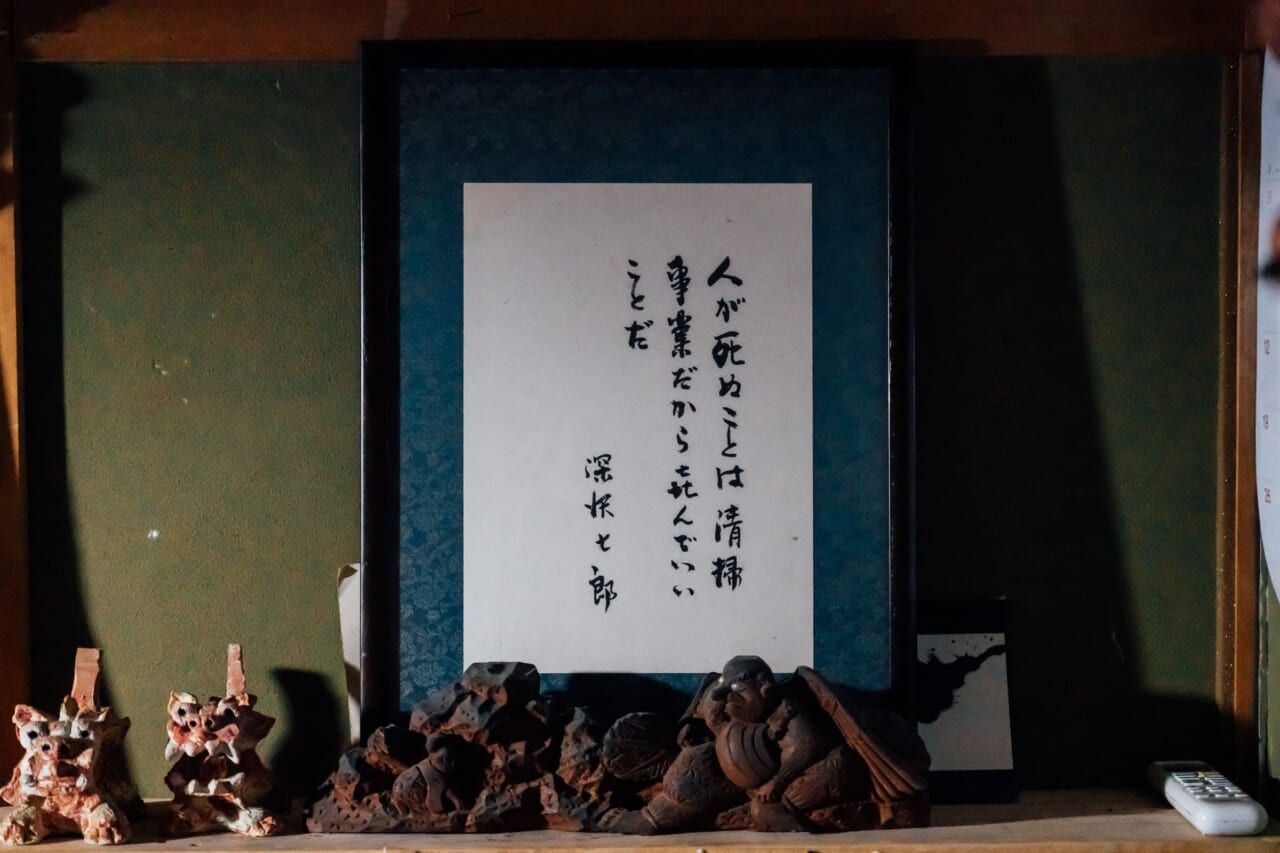 人が死ぬことは清掃
事業だから喜んでいい
ことだ
深沢七郎
12
19
26